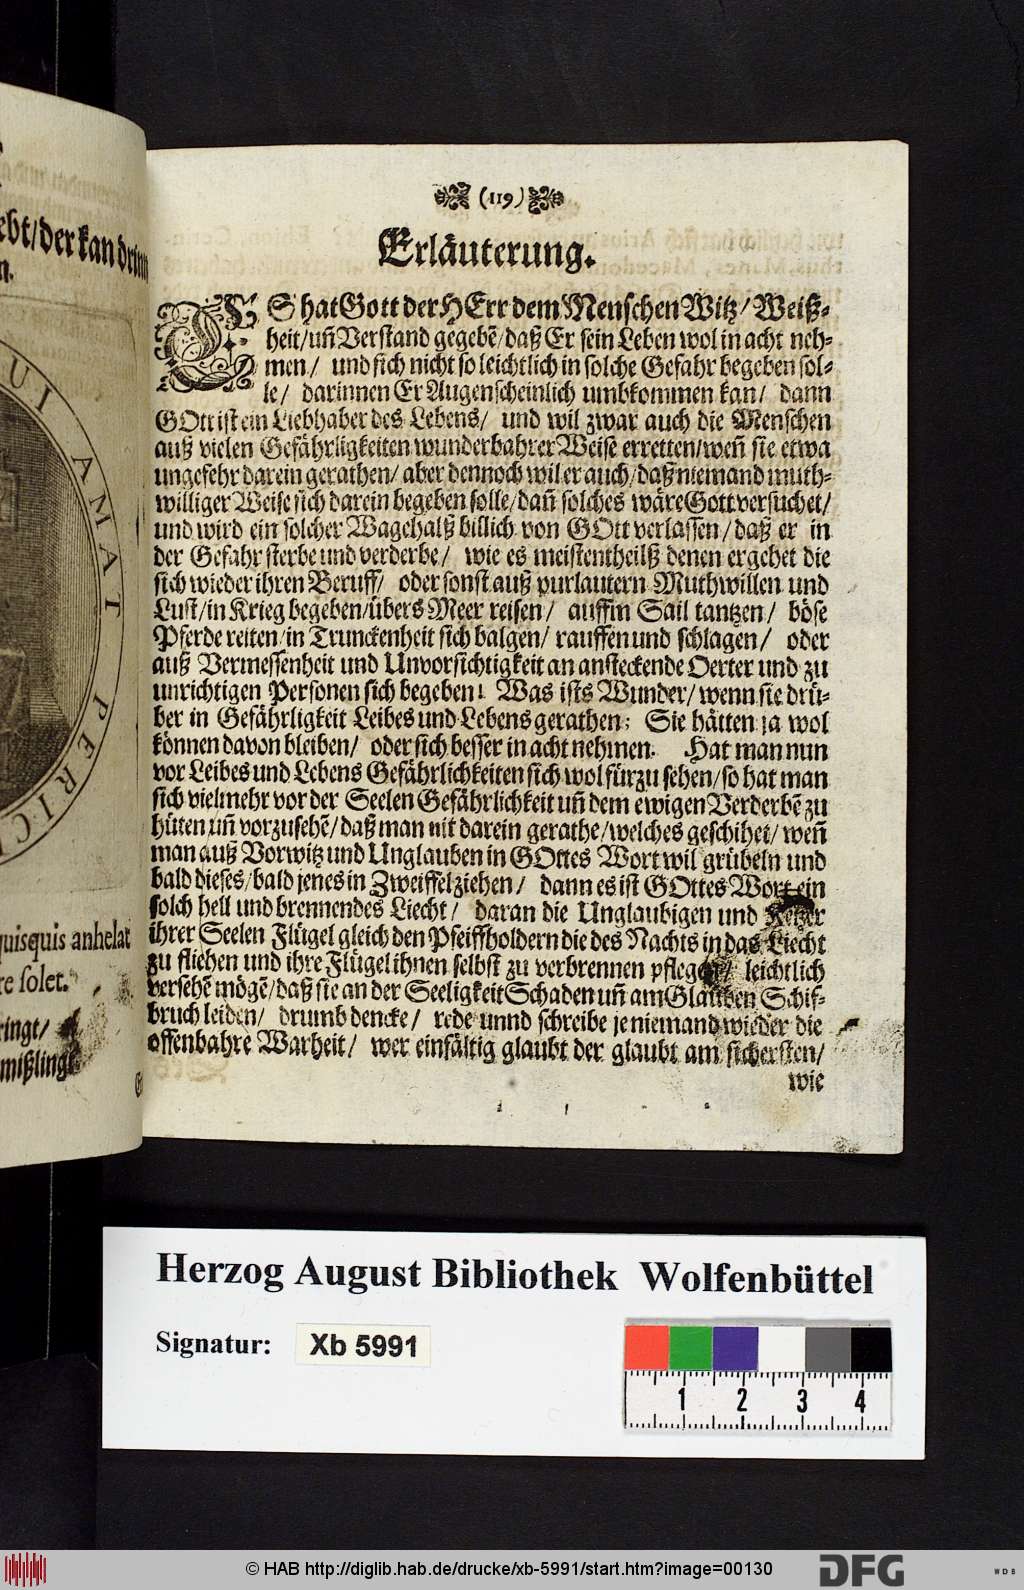 ebt/der kan drinn
n.
UI AMAT PERIC
quisquis anhelat
re solet.
ringt/
mißlingt
(119)
Erläuterung.
ES hat Gott der HErr dem Menschen Witz/ Weiß-
heit/ uñ Verstand gegebẽ/ daß Er sein Leben wol in acht neh-
men/ und sich nicht so leichtlich in solche Gefahr begeben sol-
le/ darinnen Er Augenscheinlich umbkommen kan/ dann
GOtt ist ein Liebhaber des Lebens/ und wil zwar auch die Menschen
auß vielen Gefährligkeiten wunderbahrer Weise erretten/ weñ sie etwa
ungefehr darein gerathen/ aber dennoch wil er auch/ daß niemand muth-
williger Weise sich darein begeben solle/ dañ solches wäre Gott versuchet/
und wird ein solcher Wagehalß billich von GOtt verlassen/ daß er in
der Gefahr sterbe und verderbe/ wie es meistentheilß denen ergehet die
sich wieder ihren Beruff/ oder sonst auß purlautern Muthwillen und
Lust/ in Krieg begeben/ übers Meer reisen/ auffm Sail tantzen/ böse
Pferde reiten/ in Trunckenheit sich balgen/ rauffen und schlagen/ oder
auß Vermessenheit und Unvorsichtigkeit an ansteckende Oerter und zu
unrichtigen Personen sich begeben! Was ists Wunder/ wenn sie drü-
ber in Gefährligkeit Leibes und Lebens gerathen; Sie hätten ja wol
können davon bleiben/ oder sich besser in acht nehmen. Hat man nun
vor Leibes und Lebens Gefährlichkeiten sich wol fürzu sehen/ so hat man
sich vielmehr vor der Seelen Gefährlichkeit uñ dem ewigen Verderbẽ zu
hüten uñ vorzusehẽ/ daß man nit darein gerathe/ welches geschihet/ weñ
man auß Vorwitz und Unglauben in GOttes Wort wil grübeln und
bald dieses/ bald jenes in Zweiffel ziehen/ dann es ist GOttes Wort ein
solch hell und brennendes Liecht/ daran die Unglaubigen und Ketzer
ihrer Seelen Flügel gleich den Pfeiffholdern die des Nachts in das Liecht
zu fliehen und ihre Flügel ihnen selbst zu verbrennen pflegen/ leichtlich
versehẽ mögẽ/ daß sie an der Seeligkeit Schaden uñ am Glauben Schif-
bruch leiden/ drumb dencke/ rede unnd schreibe je niemand wieder die
offenbahre Warheit/ wer einfältig glaubt der glaubt am sichersten/
wie
Herzog August Bibliothek Wolfenbüttel
Signatur: Xb 5991
1 2 3 4
© HAB http://diglib.hab.de/drucke/xb-5991/start.htm?image=00130
DFG
WDB